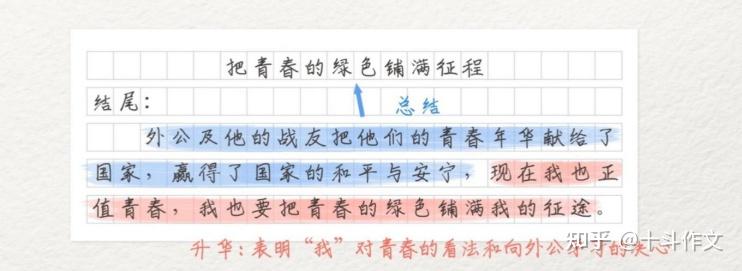 把青春的绿色铺满征程
结尾:
总结
外公及他的战友把他们的青春年华献给了
国家,赢得了国家的和平与安宁,现在我也正
值青春,我也要把青春的绿色铺满我的征途。
升华:表明“我”对青春的看法和向外公学习的决心
知乎 @十斗作文